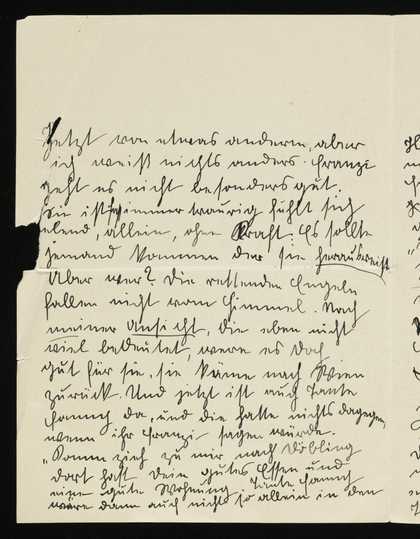 Jetzt von etwas anderem, aber
ich weiß nichts anders. Franzi
geht es nicht besonders gut.
Sie ist immer traurig fühlt sich
elend, allein, ohne Kraft. Es sollte
jemand kommen der sie herausreißt
Aber wer? Die rettenden Engeln
fallen nicht vom Himmel. Nach
meiner Ansicht, die eben nicht
viel bedeutet, were es doch
gut für sie, sie käme nach Wien
zurück. Und jetzt ist auch Tante
Fanny da, und die hatte nichts dagegen
wenn ihr Franzi sagen würde.
"Komm zieh zu mir nach Döbling
dort hast Dein gutes Essen und
eine gute Wohnung Tante Fanny
wäre dann auch nicht so allein in den